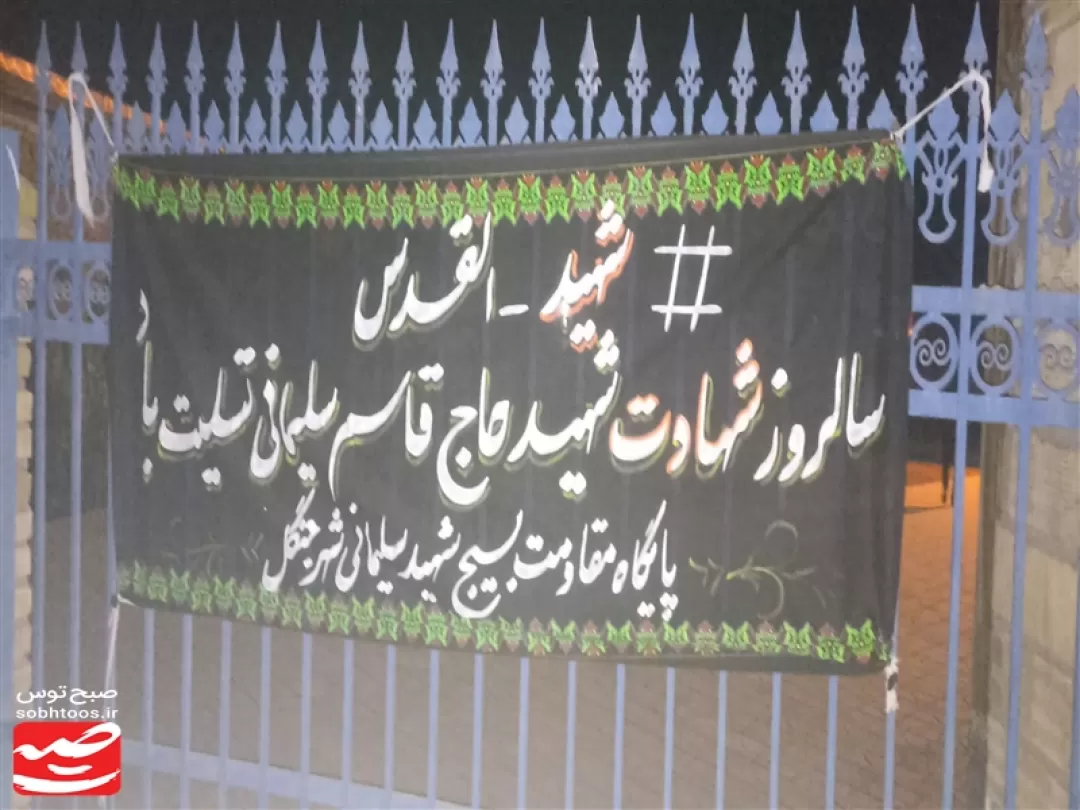 # شهید - القدس
سالروز شهادت شهید حاج قاسم سلیمانی تسلیت باد
پایگاه مقاومت بسیج شهید سلیمانی شهر جنگل
صبح توس
sobhtoos.ir